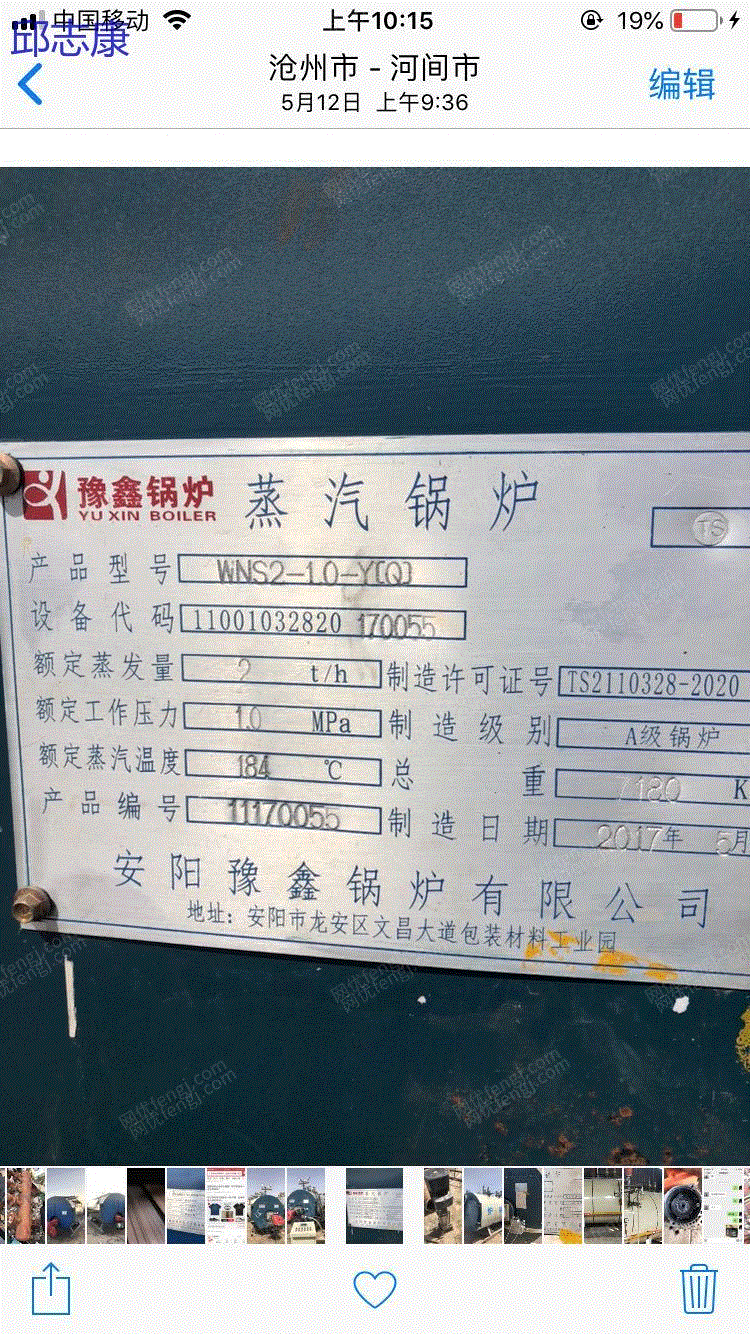 中国移动 上午10:15 19%
邱志康
沧州市 - 河间市
5月12日 上午9:36
编辑
豫鑫锅炉
YU XIN BOILER
蒸汽锅炉
TS
产品型号 WNS2-1.0-Y(Q)
设备代码 11001032820 170055
额定蒸发量 2 t/h 制造许可证号 TS2110328-2020
额定工作压力 1.0 MPa 制造级别 A级锅炉
额定蒸汽温度 184 ℃ 总重 7180 K
产品编号 11170055 制造日期 2017年 5月
安阳豫鑫锅炉有限公司
地址：安阳市龙安区文昌大道包装材料工业园
网优fengj.com